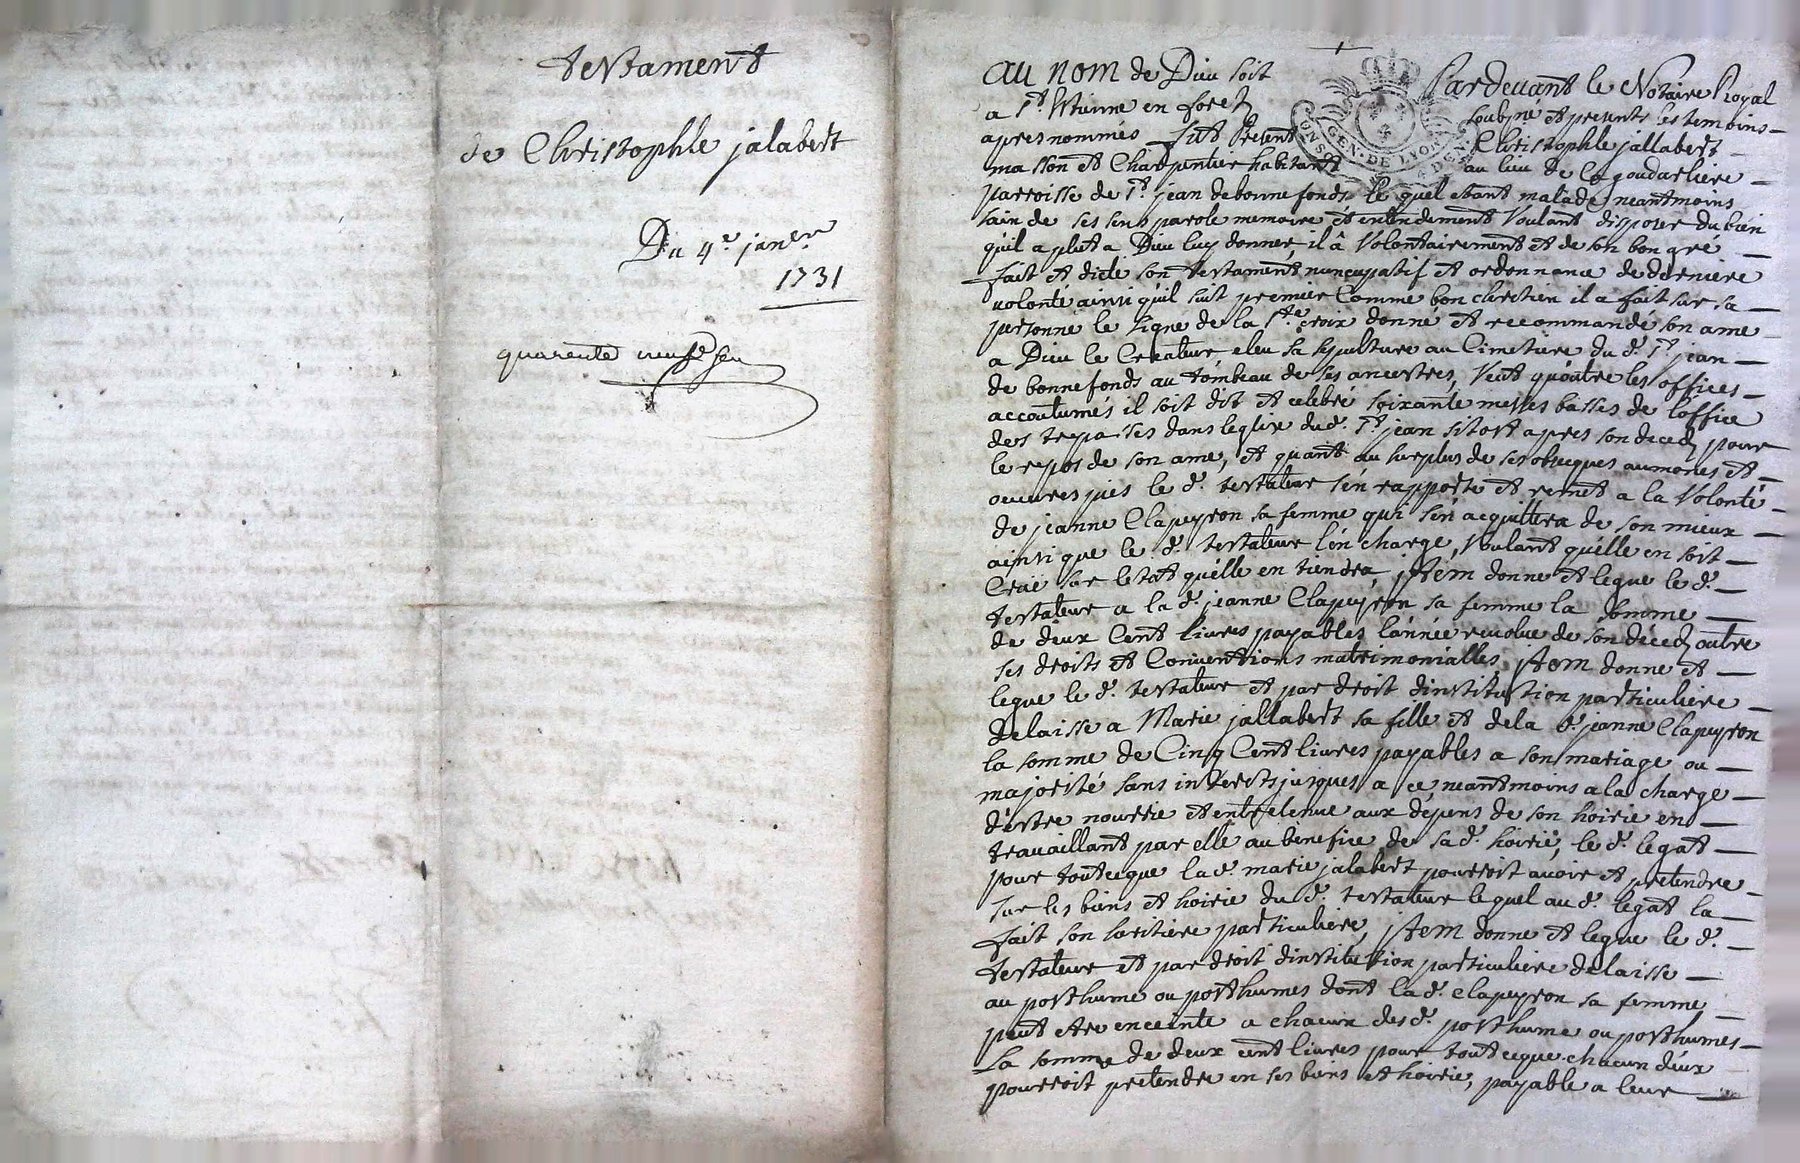 testament
de Christophle jalabert
Du 4e janvr
1731
quarente neuf
au nom de Dieu soit Pardevant le Notaire Royal
a St Etienne en forez soubné et presents les temoins
apres nommés fut Present Christophle jallabert
masson et Charpentier habitant au lieu de La goudarliere
parroisse de St jean de bonnefonds le quel etant malade neantmoins
sain de ses sens parole memoire et entendement Voulant disposer du bien
quil a plut a Dieu luy donner il â Volontairement et de son bon gré
fait et dicté son testament nuncupatif et ordonnance de derniere
volonté ainsi quil suit premier Comme bon chretien il a fait sur sa
personne le signe de la Ste croix donné et recommandé son ame
a Dieu le Createur eleu sa sepulture au Cimetiere du d. St jean
de bonnefonds au tombeau de ses ancestres, Veut quoutre les offices
accoutumés il soit dit et celebré soixante messes basses de l'office
des trepassés dans leglise du d. St jean sitost apres son decez pour
le repos de son ame, et quant au surplus de ses obseques aumones et
oeuvres pies le d. testateur s'en rapporte et remet a la Volonté
de jeanne Clapeyron sa femme qui s'en acquittera de son mieux
ainsi que le d. testateur l'en charge, Voulant qu'elle en soit
Crüe sur letat qu'elle en tiendra, jtem donne et legue le d.
testateur a la d. jeanne Clapeyron sa femme la somme
de deux Cent livres payables l'année revolue de son décez outre
ses droits et Conventions matrimonialles, jtem donne et
legue le d. testateur et par droit dinstitution particuliere
delaisse a Marie jallabert sa fille et dela d. jeanne Clapeyron
la somme de Cinq Cent livres payables a son mariage ou
majorité sans interets jusques a ce, neantmoins a la charge
d'estre nourrie et entretenue aux dépens de son hoirie en
travaillant par elle au benefice de sa d. hoirie, le d. legat
pour tout ce que la d. marie jalabert pourroit avoir et pretendre
sur les biens et hoirie du d. testateur le quel au d. legat la
fait son haritiere particuliere, jtem donne et legue le d.
testateur et par droit dinstitution particuliere delaisse
au posthume ou posthumes dont la d. clapeyron sa femme
peut etre enceinte a chacun des d. posthume ou posthumes
La somme de deux cent livres pour tout ceque chacun d'eux
pourroit pretendre en ses biens et hoirie, payable a leur